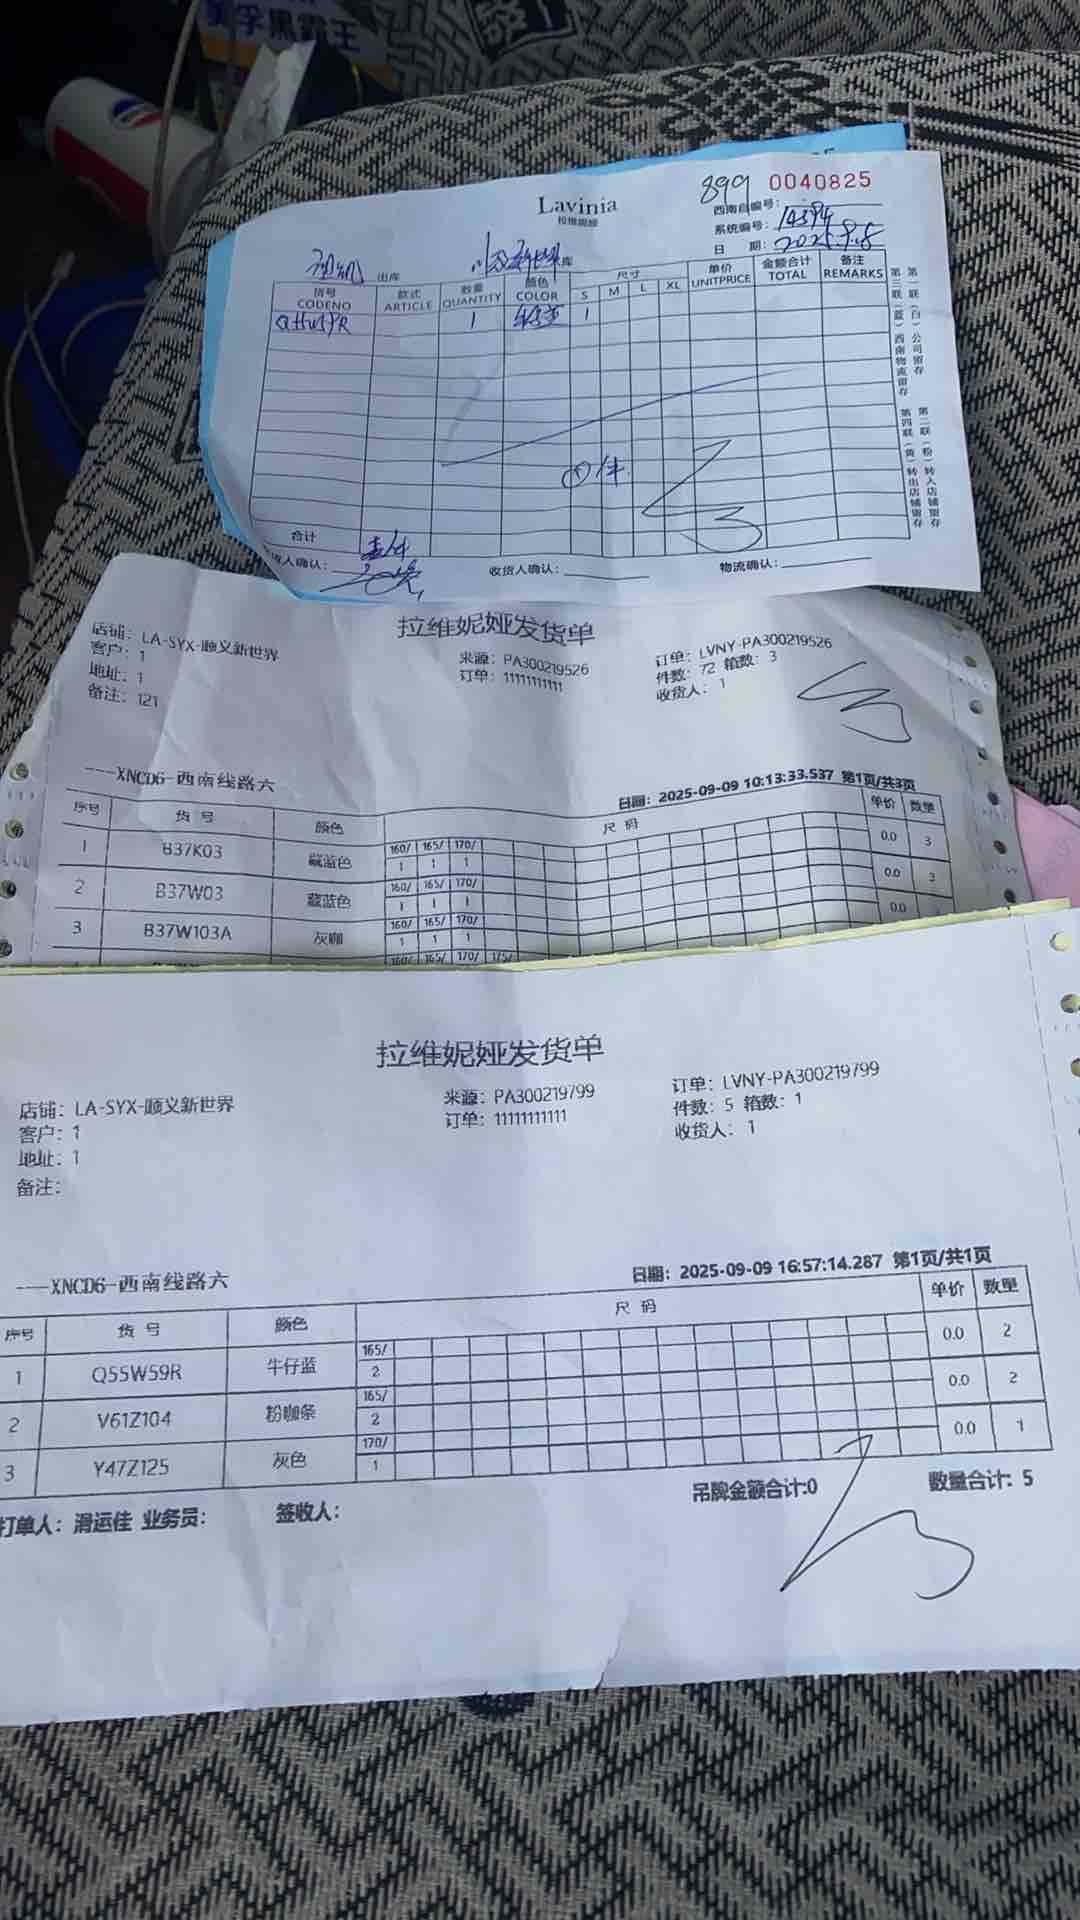 美孚黑霸王
Lavinia
拉维妮娅
899 0040825
西南自编号：
系统编号：14394
日 期：2025.9.8
出库
库
货号 CODENO
款式 ARTICLE
数量 QUANTITY
颜色 COLOR
尺寸
S M L XL
单价 UNITPRICE
金额合计 TOTAL
备注 REMARKS
1 1
第一联（白）公司留存
第三联（蓝）西南物流留存
第二联（粉）转入店铺留存
第四联（黄）转出店铺留存
合计
货人确认：
收货人确认：
物流确认：
拉维妮娅发货单
店铺：LA-SYX-顺义新世界
来源：PA300219526
订单：LVNY-PA300219526
客户：1
订单：11111111111
件数：72 箱数：3
地址：1
收货人：1
备注：121
---XNCD6-西南线路六
日期：2025-09-09 10:13:33.537 第1页/共3页
序号 货 号 颜色 尺 码 单价 数量
160/ 165/ 170/
1 B37K03 藏蓝色 1 1 1 0.0 3
160/ 165/ 170/
2 B37W03 藏蓝色 1 1 1 0.0 3
160/ 165/ 170/
3 B37W103A 灰咖 1 1 1 0.0
160/ 165/ 170/ 175/
拉维妮娅发货单
店铺：LA-SYX-顺义新世界
来源：PA300219799
订单：LVNY-PA300219799
客户：1
订单：11111111111
件数：5 箱数：1
地址：1
收货人：1
备注：
---XNCD6-西南线路六
日期：2025-09-09 16:57:14.287 第1页/共1页
序号 货 号 颜色 尺 码 单价 数量
165/
1 Q55W59R 牛仔蓝 2 0.0 2
165/
2 V61Z104 粉咖条 2 0.0 2
170/
3 Y47Z125 灰色 1 0.0 1
吊牌金额合计:0 数量合计：5
打单人：滑运佳 业务员： 签收人：